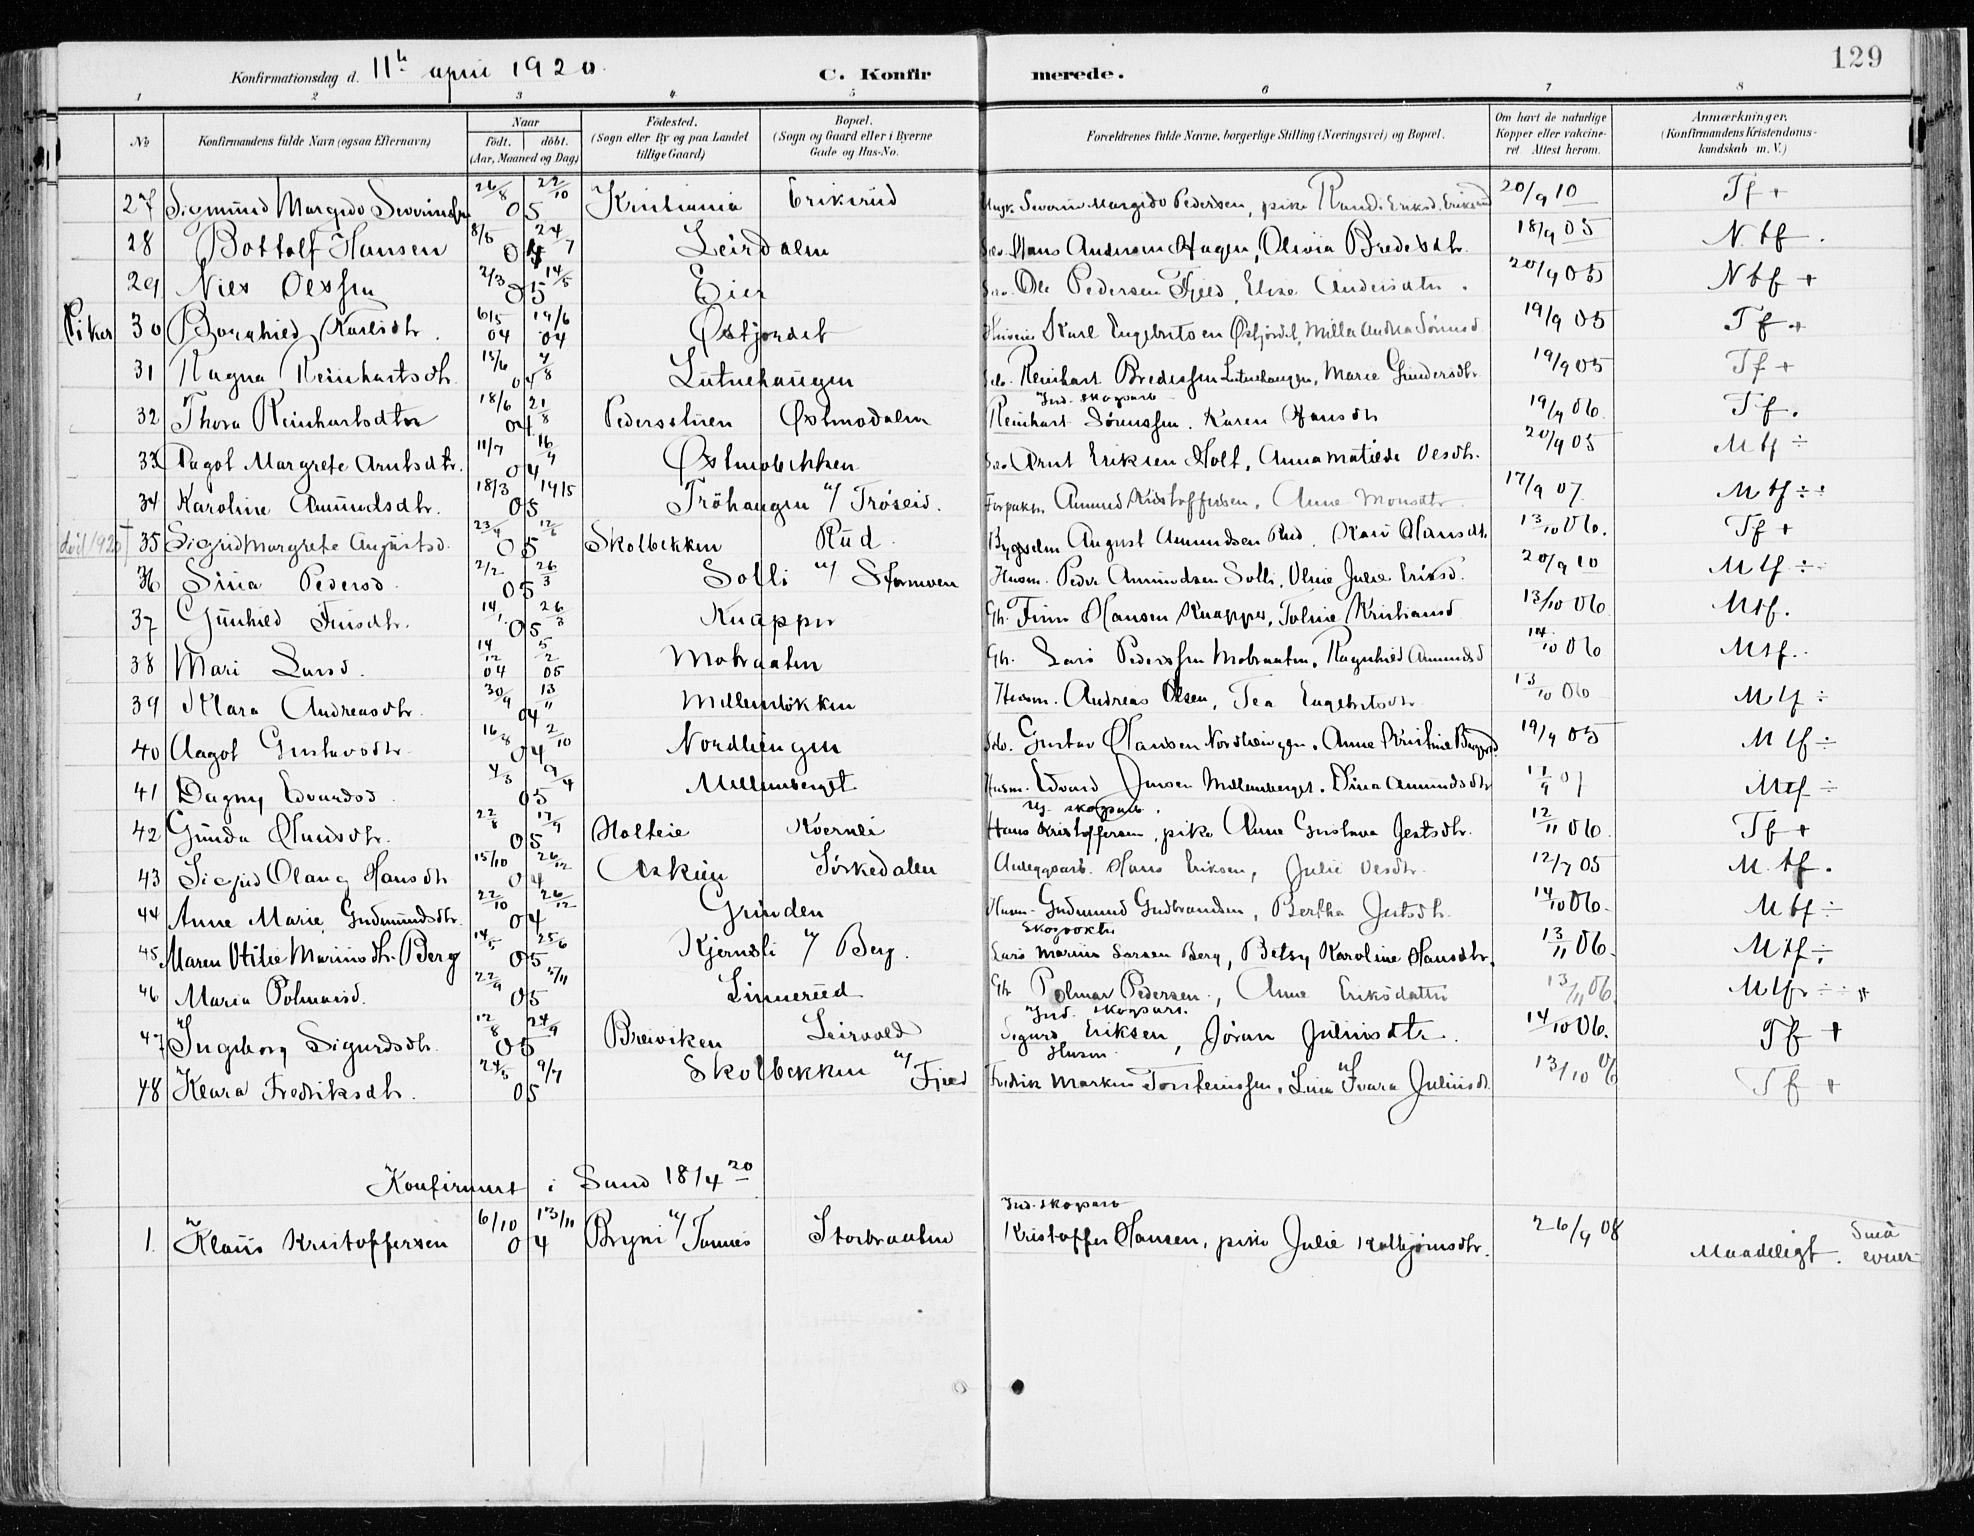 129
Konfirmationsdag d. 11te april 1920. C. Konfirmerede.
1 2 3 4 5 6 7 8
No. Konfirmandens fulde Navn (ogsaa Efternavn) Naar født. døbt. (Aar, Maaned og Dag) Fødested. (Sogn eller By og paa Landet tillige Gaard) Bopæl. (Sogn og Gaard eller i Byerne Gade og Hus-No. Forældrenes fulde Navne, borgerlige Stilling (Næringsvei) og Bopæl. Om havt de naturlige Kopper eller vakcineret. Attest herom. Anmærkninger. (Konfirmandens Kristendomskundskab m. V.)
27 Sigmund Margido 26/8 22/10 05 Kristiania Eriksrud Severin Margido Pedersen, pike Randi Eriksd. Eriksrud 20/9 10 Tf +
28 Bottolf Hansen 8/5 24/7 05 Leirdalen Hans Andersen Hagen, Olivia Bredesdtr. 18/9 05 N. tf.
29 Niels Olsen 2/3 14/5 05 Eier Ole Pedersen Fjeld, Elise Andersdtr. 20/9 05 Ntf +
Piker 30 Borghild Karlsdtr. 6/5 04 19/6 04 Østjordet Karl Engebritsen Østjordet, Milla Andrea Sørensd. 19/9 05 Tf +
31 Ragna Reinhartsdtr. 15/6 7/8 04 Lutnehaugen Reinhart Bredesen Lutnehaugen, Marie Gundersdtr. 19/9 05 Tf +
32 Thora Reinhartsdtr 18/6 21/8 04 Pedersstuen Østmodalen Ind. skogsarb. Reinhart Sørenssen. Karen Hansdtr 19/9 06. Tf.
33 Aagot Margrete Arntsdtr. 11/7 16/9 04 Østmobekken Arnt Eriksen Holt, Anna Matilde Olsdtr. 20/9 05 Mtf ÷
34 Karoline Amundsdtr. 18/3 14/5 05 Tröhaugen u/ Tröseid. Forpakt. Amund Kristoffersen, Anne Monsdtr 17/9 07. Mtf ÷
död 1920 † 35 Sigrid Margrete Augustsd. 23/4 12/6 05 Skolbekken Rud. Bygselm August Amundsen Rud. Kari Hansdtr. 13/10 06. Tf +
36 Sina Pedersd. 2/2 26/3 05 Solli u/ Stormoen Husm. Peder Amundsen Solli, Oline Julie Eriksd. 20/9 10 Mtf ÷
37 Gunhild Finsdtr. 14/1 26/3 05 Knapper Gbr. Finn Hansen Knapper, Toline Kristiansd. 13/10 06. Mtf.
38 Mari Larsd. 14/12 04 5/2 05 Mobraaten Gbr. Lars Pedersen Mobraaten, Ragnhild Amundsd 14/10 06 Mtf.
39 Klara Andreasdtr. 30/9 13/11 04 Millemløkken Husm. Andreas Olsen, Tea Engebritsdtr. 13/10 06 Mtf ÷
40 Aagot Gustavsdtr. 16/8 2/10 04 Nordhengen Gustav Hansen Nordhengen. Anne Kristine 19/9 05 Mtf ÷
41 Dagny Edvardsd. 4/3 9/4 05 Millumberget Husm. Edvard Jensen Millumberget. Dina Amundsdtr 11/9 07 Mtf ÷
42 Gunda Hansdtr. 22/8 17/9 05 Holleie Kvernli Ug. skogsarb. Hans Kristoffersen, pike Anne Gustava Jentsdtr. 12/11 06. Tf +
43 Sigrid Olaug Hansdtr. 15/10 26/12 04 Askim Sørkedalen Anleggsarb. Hans Eriksen, Julie Olsdtr. 12/7 05 M. tf.
44 Anne Marie Gudmundsdtr. 22/10 26/12 04 Grinden Husm. Gudmund Gudbrandsen, Bertha Jentsdtr. 14/10 06. Mtf ÷
45 Maren Otilie Mariusdtr. Berg 14/5 25/6 05 Kjernsli u/ Berg. Skogvokter Lars Marius Larsen Berg, Betsy Karoline Hansdtr. 13/11 06. Mtf ÷
46 Maria Polmarsd. 22/9 5/11 05 Linnerud Gbr Polmar Pedersen, Anne Eriksdatter 13/11 06. Mtf ÷ ÷
47 Ingeborg Sigurdsdtr. 12/8 24/9 05 Breiviken Leirvold Ind. skogsarb. Sigurd Eriksen, Jöran Juliusdtr. 14/10 06. Tf +
48 Klara Fredriksdtr. 24/5 9/7 05 Skolbekken u/ Fjeld Husm. Fredrik Markus Torsteinssen, Lina Ivara Juliusd. 13/10 06 Tf +
Konfirmert i Sand 18/4 20
1. Klaus Kristoffersen 6/10 13/11 04 Bryni u/ Storbraaten Ind. skogsarb Kristoffer Hansen, pike Julie Kolbjørnsdtr. 26/9 08 Maadeligt. Smaa evner